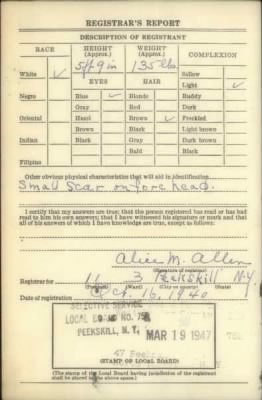 REGISTRAR'S REPORT
DESCRIPTION OF REGISTRANT
RACE HEIGHT (Approx.) WEIGHT (Approx.) COMPLEXION
5 ft 9 in 135 lbs
White ✓ Sallow
EYES HAIR Light ✓
Negro Blue ✓ Blonde Ruddy
Gray Red Dark
Oriental Hazel Brown ✓ Freckled
Brown Black Light brown
Indian Black Gray Dark brown
Bald Black
Filipino
Other obvious physical characteristics that will aid in identification
Small scar on fore head.
I certify that my answers are true; that the person registered has read or has had
read to him his own answers; that I have witnessed his signature or mark and that
all of his answers of which I have knowledge are true, except as follows:
Alice M. Allen
(Signature of registrar)
Registrar for 16 3 Peekskill N.Y
(Precinct) (Ward) (City or county) (State)
Date of registration Oct. 16, 1940
SELECTIVE SERVICE
LOCAL BOARD NO.
PEEKSKILL, N.Y.
MAR 19 1947
(STAMP OF LOCAL BOARD)
(The stamp of the Local Board having jurisdiction of the registrant
shall be placed in the above space.)